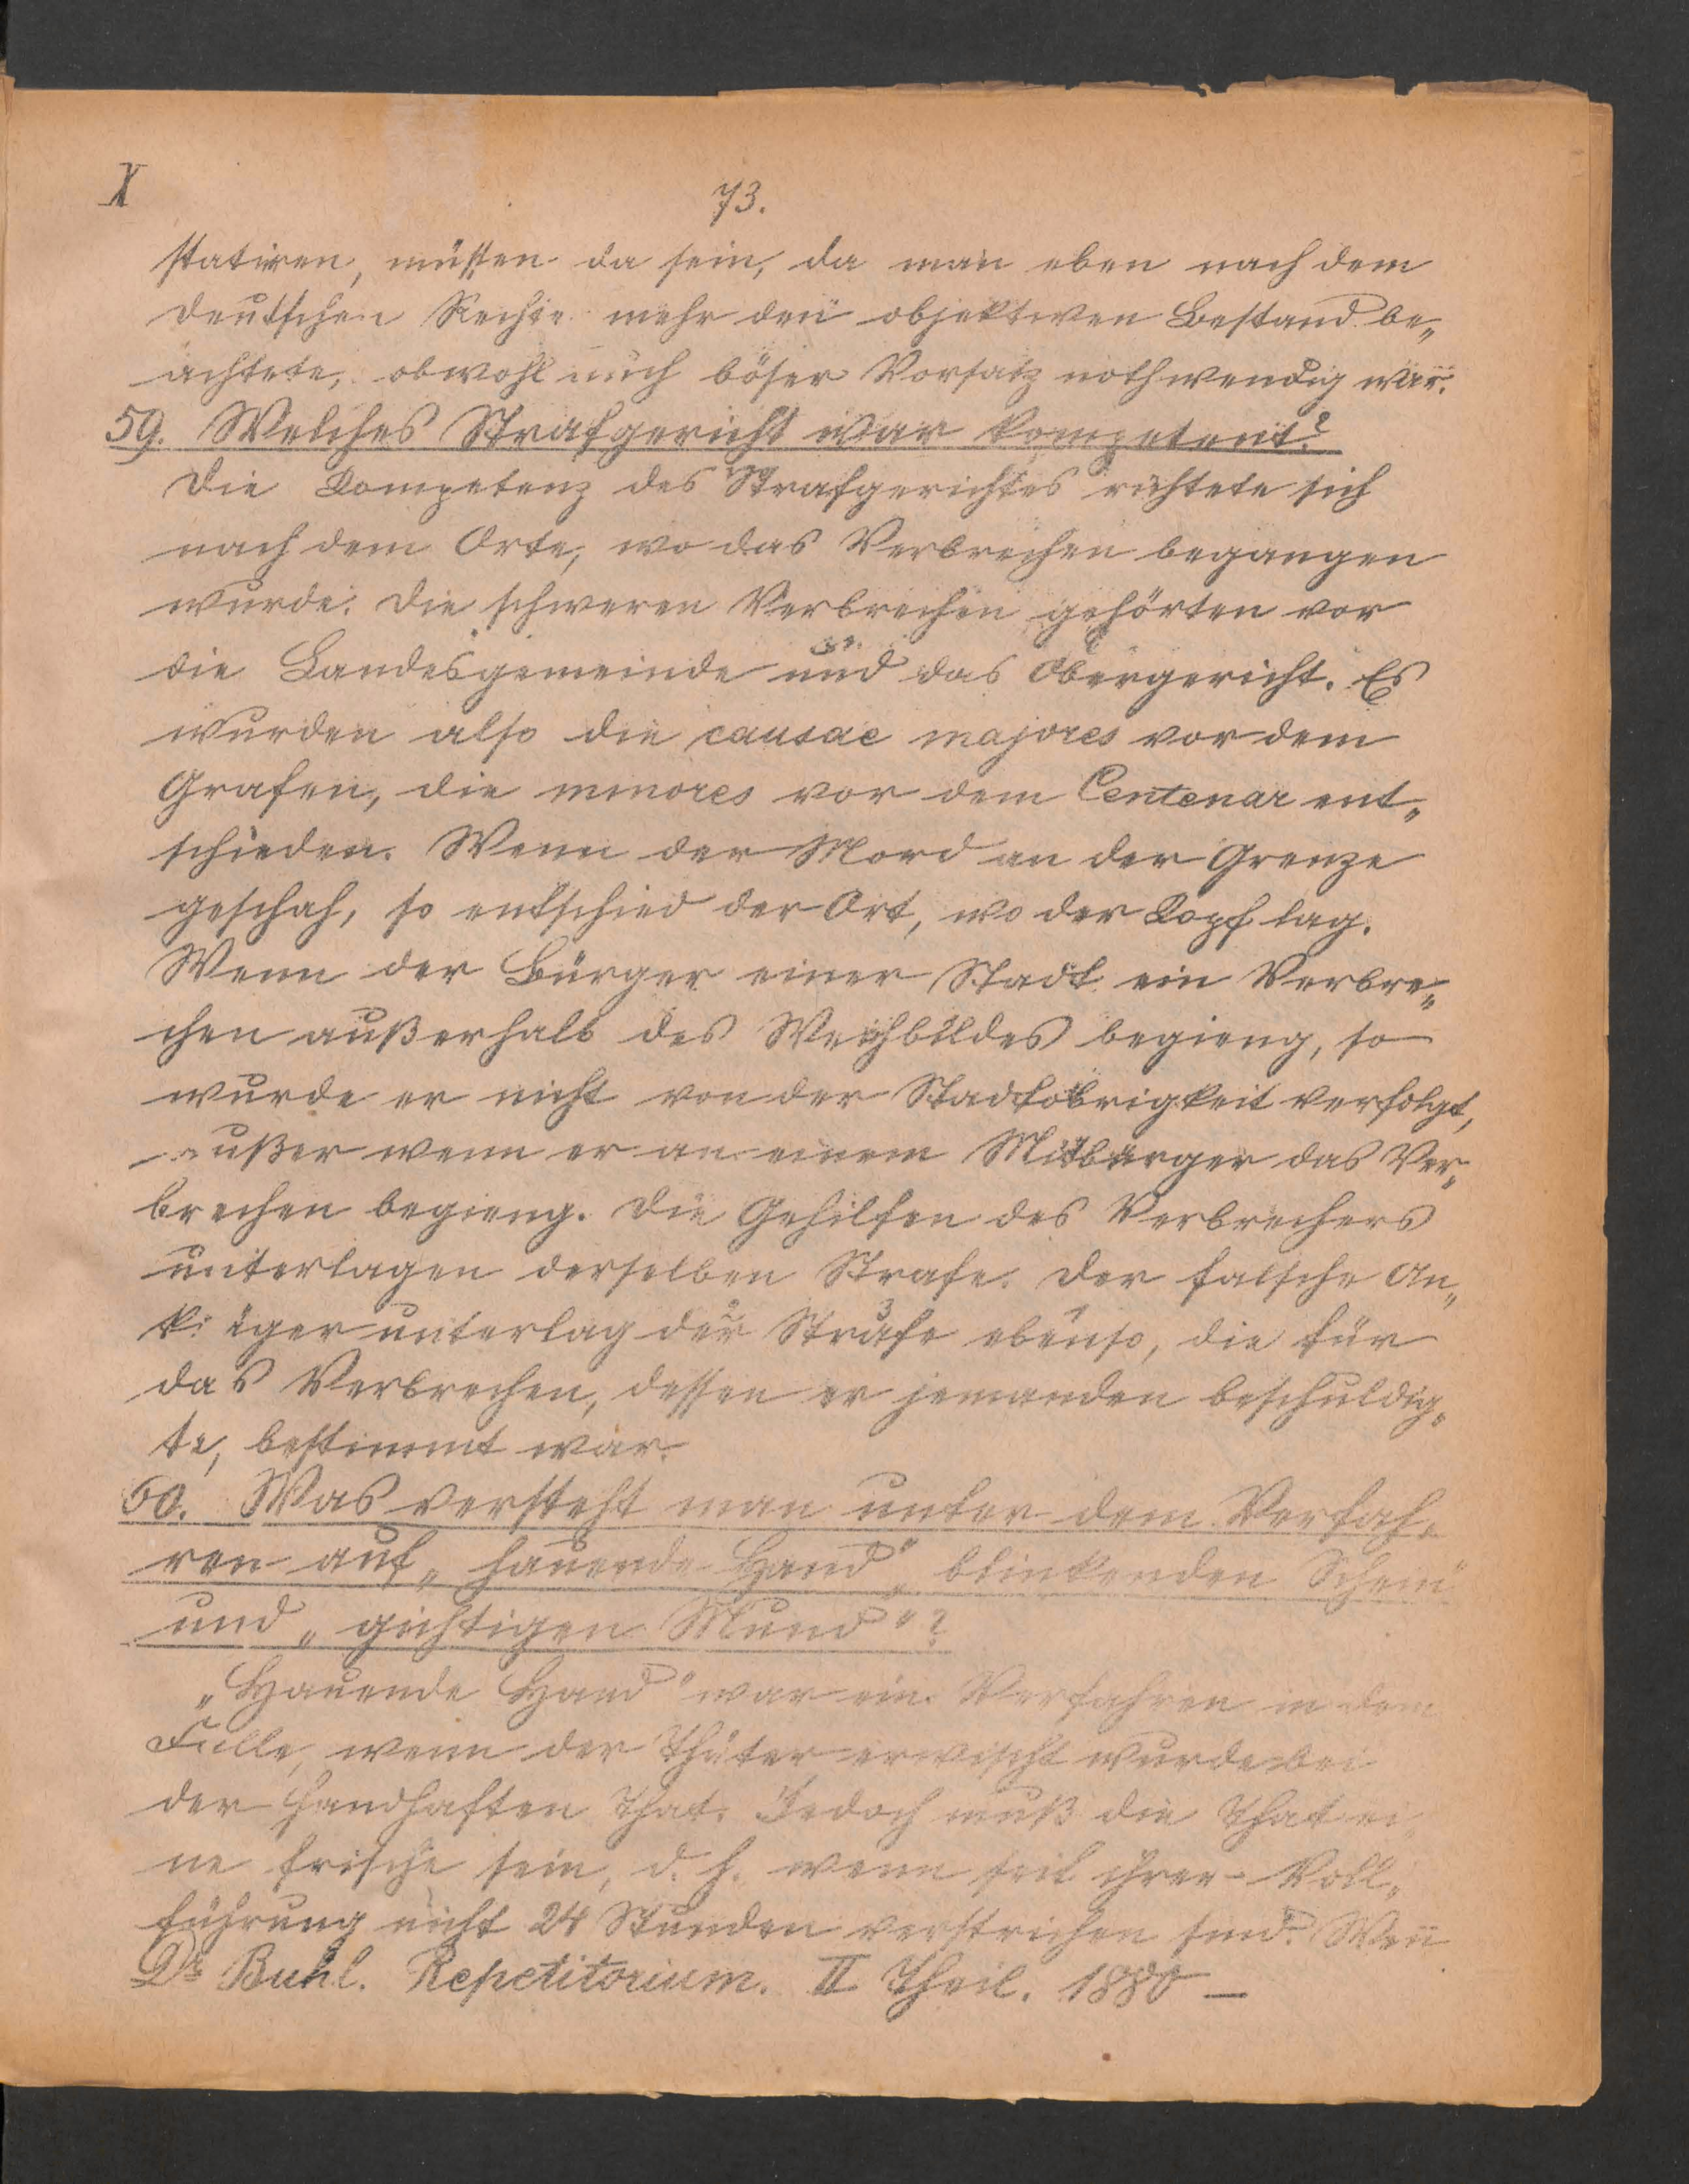 X
73.
statiren, müssen da sein, da man eben nach dem
deutschen Rechte mehr den objektiven Bestand be„
achtete, obwohl auch böser Vorsatz nothwendig war.
59. Welches Strafgericht war kompetent?
Die Kompetenz des Strafgerichtes richtete sich
nach dem Orte, wo das Verbrechen begangen
wurde. Die schweren Verbrechen gehörten vor
die Landesgemeinde und das Obergericht. Es
wurden also die causae majores vor dem
Grafen, die minores vor dem Centenar ent„
schieden. Wenn der Mord an der Grenze
geschah, so entschied der Ort, wo der Kopf lag.
Wenn der Bürger einer Stadt ein Verbre„
chen außerhalb des Weichbildes begieng, so
wurde er nicht von der Stadtobrigkeit verfolgt,
außer wenn er an einem Mitbürger das Ver„
brechen begieng. Die Gehilfen des Verbrechers
unterlagen derselben Strafe. Der falsche An„
kläger unterlag der Strafe ebenso, die für
das Verbrechen, dessen er jemanden beschuldig„
te, bestimmt war.
60. Was versteht man unter dem Verfah„
ren auf „hauende Hand“ „blinkenden Schein“
und „gichtigen Mund“?
„Hauende Hand“ war ein Verfahren in dem
Falle, wenn der Thäter erwischt wurde bei
der handhaften That. Jedoch muß die That ei„
ne frische sein, d. h. wenn seit ihrer Voll„
führung nicht 24 Stunden verstrichen sind. Weñ
Dr Buhl. Repetitorium. II Theil. 1880 —